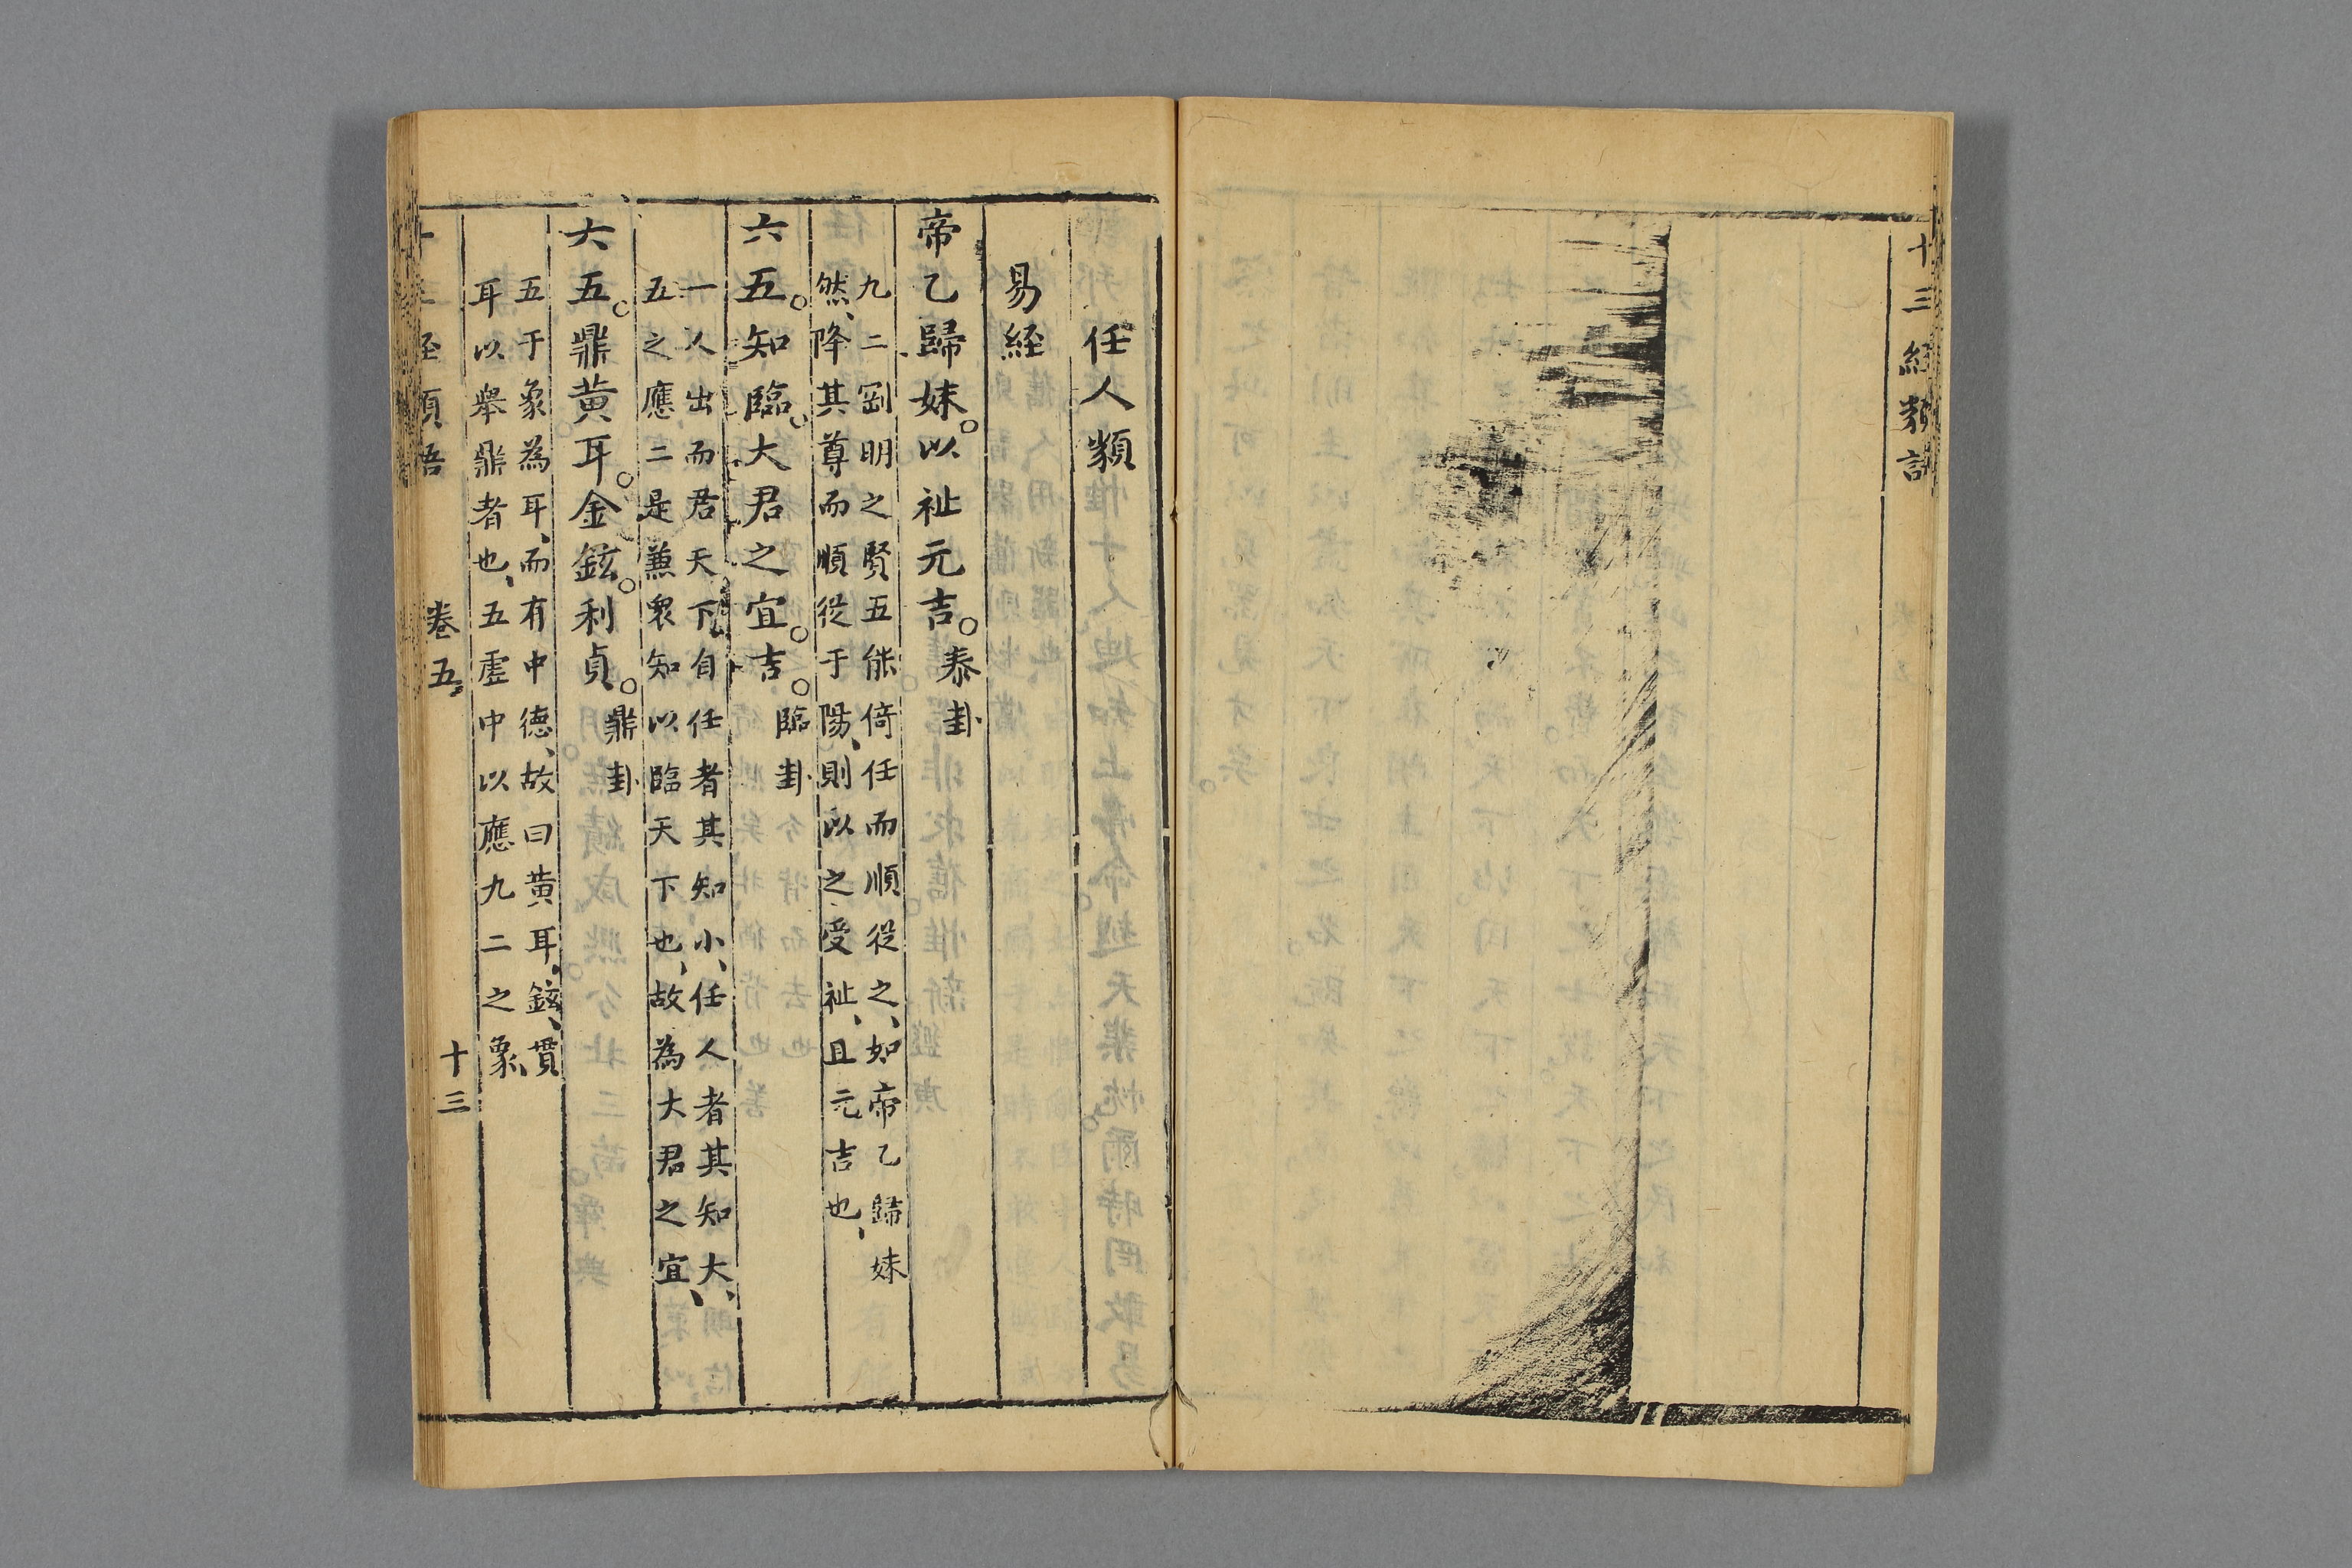 十三經類語
任人類
易経
帝乙歸妹。以祉元吉。泰卦
九二剛明之賢五能倚任而順從之、如帝乙歸妹
然、降其尊而順從于陽、則以之受祉、且元吉也、
六五。知臨、大君之宜。吉。臨卦
一人出而君天下自任者其知小、任人者其知大、
五之應二是兼衆知以臨天下也、故為大君之宜、
六五。鼎黄耳。金鉉。利貞。鼎卦
五于象為耳、而有中德、故曰黄耳、鉉、貫
耳以舉鼎者也、五虛中以應九二之象、
卷五 十三